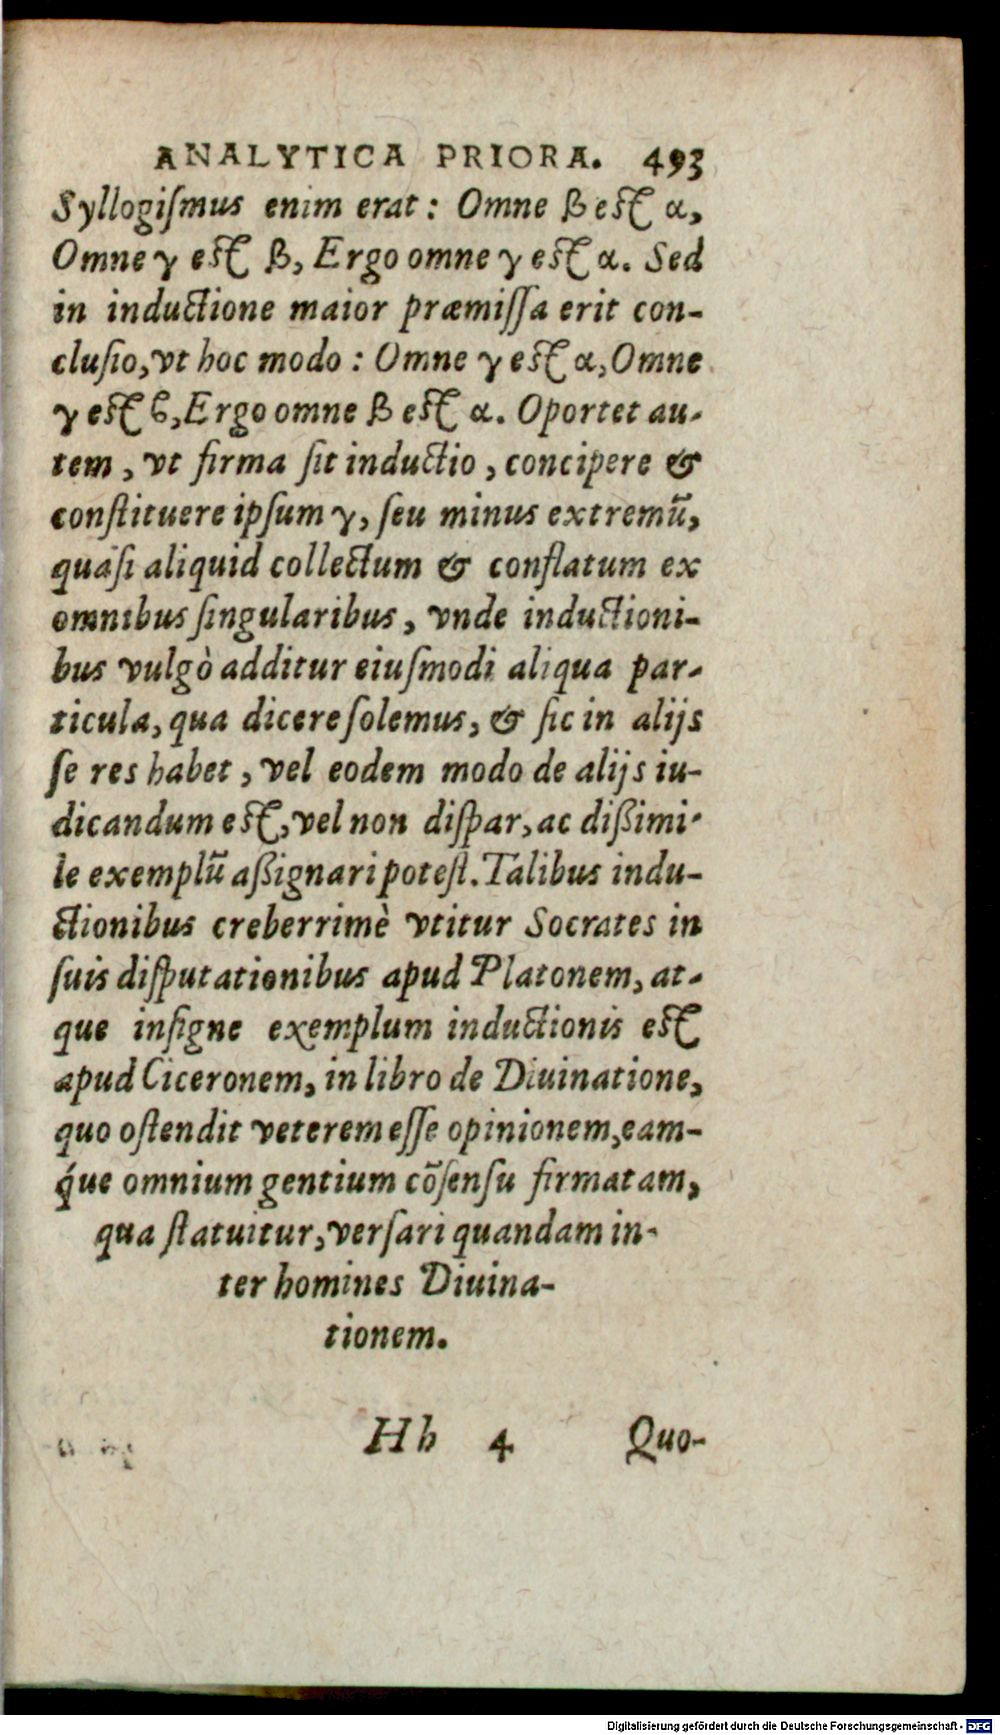 ANALYTICA PRIORA. 493
Syllogiſmus enim erat: Omne β eſt α,
Omne γ eſt β, Ergo omne γ eſt α. Sed
in inductione maior præmiſſa erit con-
cluſio, vt hoc modo: Omne γ eſt α, Omne
γ eſt ϐ, Ergo omne β eſt α. Oportet au-
tem, vt firma ſit inductio, concipere &
conſtituere ipſum γ, ſeu minus extremũ,
quaſi aliquid collectum & conflatum ex
omnibus ſingularibus, vnde inductioni-
bus vulgò additur eiuſmodi aliqua par-
ticula, qua dicere ſolemus, & ſic in alijs
ſe res habet, vel eodem modo de alijs iu-
dicandum eſt, vel non diſpar, ac dißimi-
le exemplũ aßignari poteſt. Talibus indu-
ctionibus creberrimè vtitur Socrates in
ſuis diſputationibus apud Platonem, at-
que inſigne exemplum inductionis eſt
apud Ciceronem, in libro de Diuinatione,
quo oſtendit veterem eſſe opinionem, eam-
q́ue omnium gentium cõſenſu firmatam,
qua ſtatuitur, verſari quandam in-
ter homines Diuina-
tionem.
Hh 4 Quo-
Digitalisierung gefördert durch die Deutsche Forschungsgemeinschaft - DFG